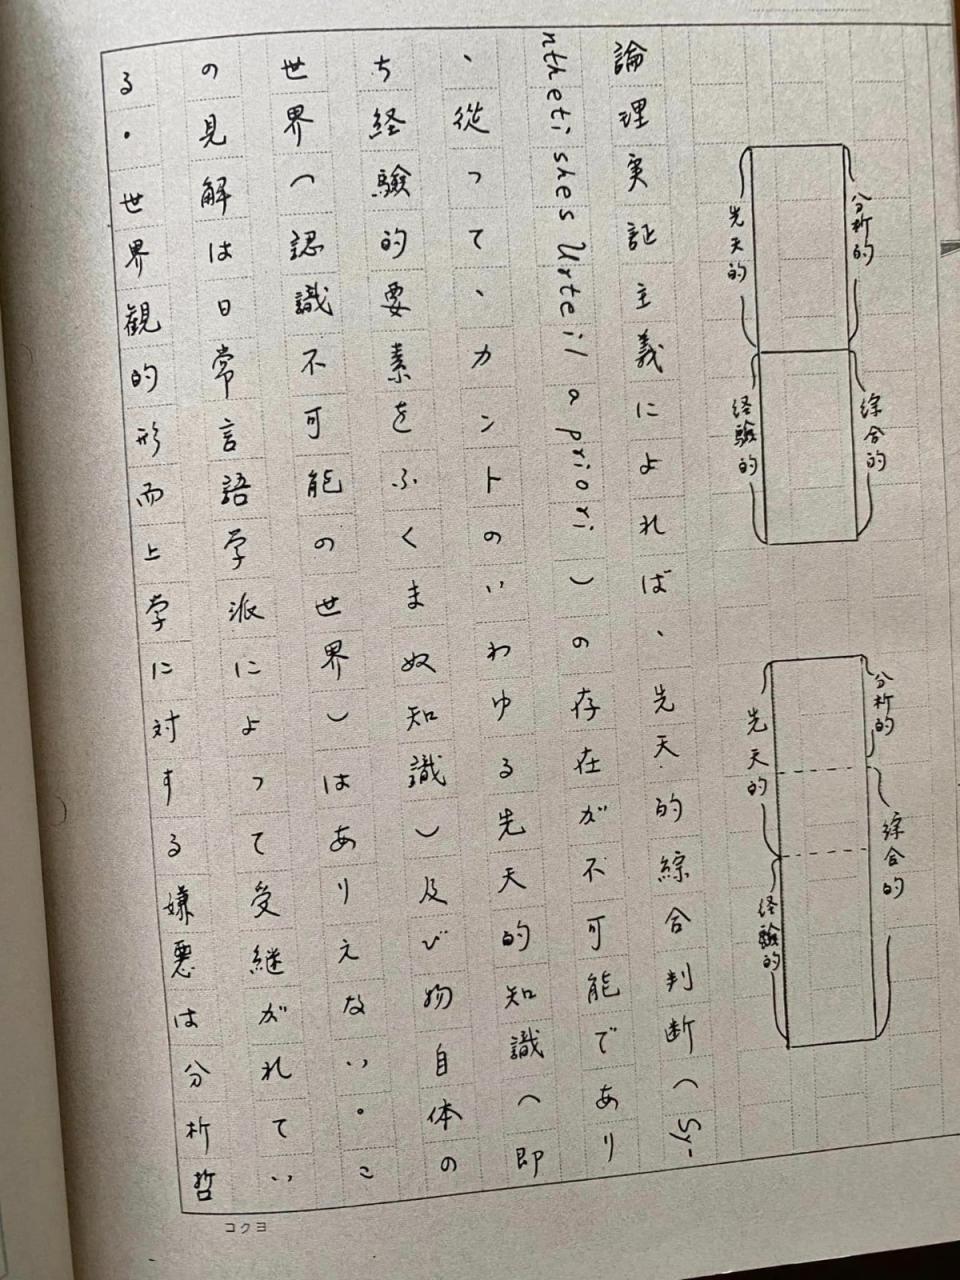 分析的
綜合的
先天的
経験的
分析的
綜合的
先天的
経験的
論理実証主義によれば、先天的綜合判断(Sy-
nthetishes Urteil a priori)の存在が不可能であり
、従って、カントのいわゆる先天的知識(即
ち経験的要素をふくまぬ知識)及び物自体の
世界(認識不可能の世界)はありえない。こ
の見解は日常言語学派によって受継がれてい
る。世界観的形而上学に対する嫌悪は分析哲
コクヨ